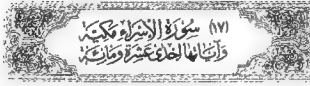 (١٧) سُورَةُ الْإِسْرَاءِ مَكِّيَّة
وَآيَاتُهَا إِحْدَى عَشْرَةَ وَمِائَة